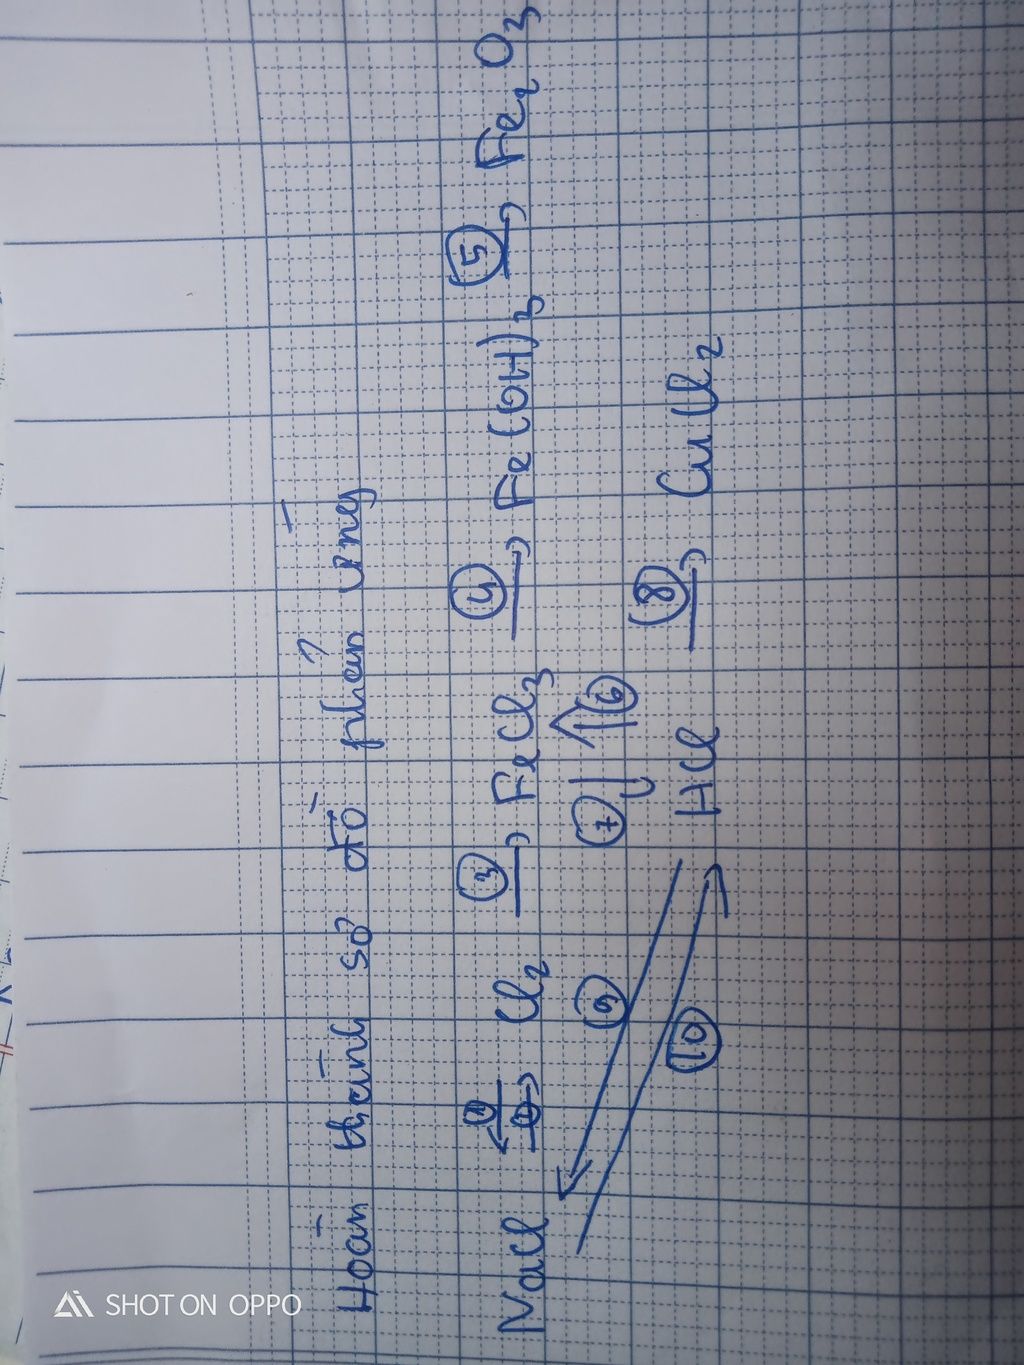 Hoàn thành sơ đồ phản ứng
NaCl ①→ ←② Cl2 ③→ FeCl3 ④→ Fe(OH)3 ⑤→ Fe2O3
⑦ ⑥
⑨
⑩
HCl ⑧→ CuCl2
SHOT ON OPPO